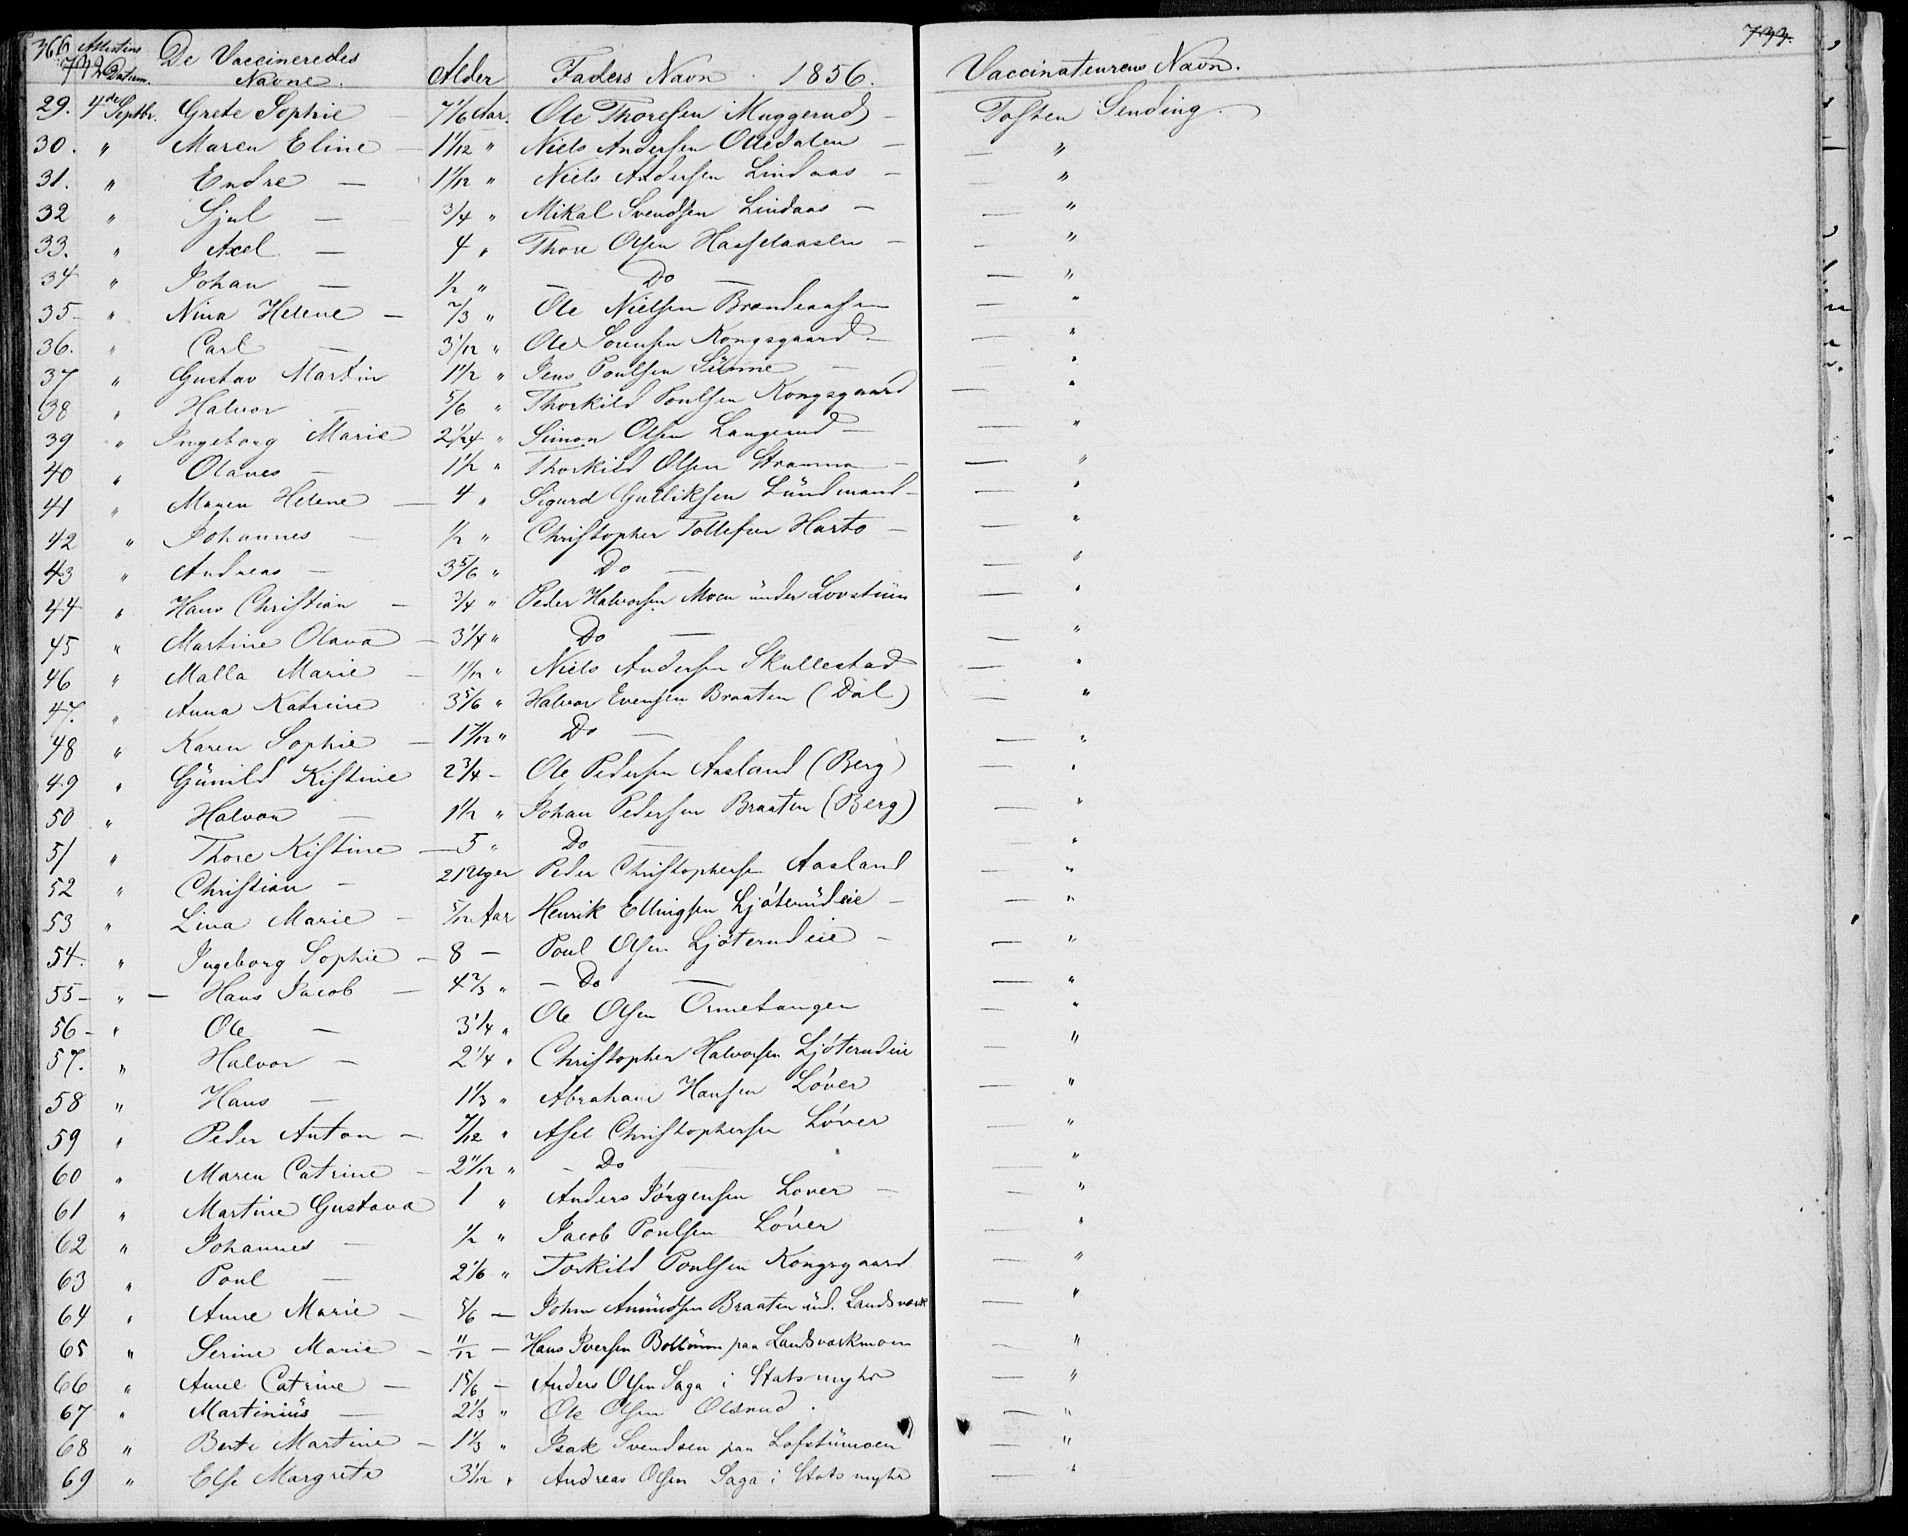 366 Attestens De Vaccineredes Alder Faders Navn 1856. Vaccinateurens Navn. 733.
732 Datum. Navne.
29. 4de Septbr. Grete Sophie — 7 1/6 Aar. Ole Thoresen Muggerud — Tosten Sending.
30. " Maren Eline — 1 1/12 " Niels Andersen — — "
31. " Endre — 1 1/12 " Niels Andersen Lindaas — — "
32 " Sjul — 3/4 " Mikal Svendsen Lindaas — — "
33. " Axel — 4 " Thore Olsen Hasselaasen — — "
34 " Johan — 1/2 " — Do — — "
35 — " Nina Helene — 2/3 " Ole Nielsen Brandaasen — "
36. " Carl — 3 1/12 " Ole Sorensen Kongsgaard — — "
37 " Gustav Martin 1 1/2 " Jens Poulsen — — "
38 " Halvor — 5/6 " Thorkild Poulsen Kongsgaard — "
39 " Ingeborg Marie 2 1/24 " Simon Olsen Langerud — — "
40 " Olaves — 1 1/2 " Thorkild Olsen Stramna — — "
41 " Maren Helene — 4 " Sigurd Gulliksen — — "
42 " Johannes — 1/2 " Christopher Tollefsen Harto — — "
43 " Andreas — 3 5/6 " Do — — "
44 " Hans Christian — 3/4 " Peder Halvorsen Moen under Lovstuen — "
45 " Martine Olava — 3 1/4 " Do — — "
46 " Malla Marie — 1 1/12 " Niels Andersen Skullestad — "
47. " Anna Katrine 3 5/6 " Halvor Evensen Braaten (Dal) — "
48 " Karen Sophie — 1 7/12 " Do — — "
49 " Gunild Kistine 2 3/4 — Ole Pedersen Aasland (Berg) — "
50 " Halvor — 1 1/2 " Johan Pedersen Braaten (Berg) — "
51 " Thore Kistine — 5 " Do — — "
52 " Christian — 21 Uger Peder Christophersen Aasland — "
53 " Lina Marie — 5/12 Aar Henrik Ellingsen Ljøterudeie — — "
54. " Ingeborg Sophie — 8 — Poul Olsen Ljøterudeie — — "
55 — " — Hans Jacob — 4 2/3 " — Do — — "
56 — " Ole — 3 1/4 " Ole Olsen Ormetangen — "
57. " Halvor — 2 1/4 " Christopher Halvorsen Ljøterudeie — "
58 " Hans — 1 1/3 " Abraham Hansen Løver — "
59 " Peder Anton — 7/12 " Asel Christophersen Løver — "
60 " Maren Catrine — 2 11/12 " — Do — — "
61 " Martine Gustava 1 " Anders Jørgensen Løver — — "
62 " Johannes — 1/2 " Jacob Poulsen Løver — "
63 " Poul — 2 1/6 " Torkild Poulsen Kongsgaard — "
64 " Anne Marie — 5/6 — Johan Amundsen Braaten und. Landsværk — "
65 " Serine Marie — 11/12 — Hans Iversen paa Landsværkmoen — "
66 " Anne Catrine — 1 5/6 — Anders Olsen Saga i Statsmyhr — "
67 " Martinius — 2 1/3 " Ole Olsen Oldrud. — "
68 " Berte Martine — 1 1/3 " Isak Svendsen paa Lofstumoen — "
69 " Else Margrete 3 1/12 " Andreas Olsen Saga i Statsmyhr — "